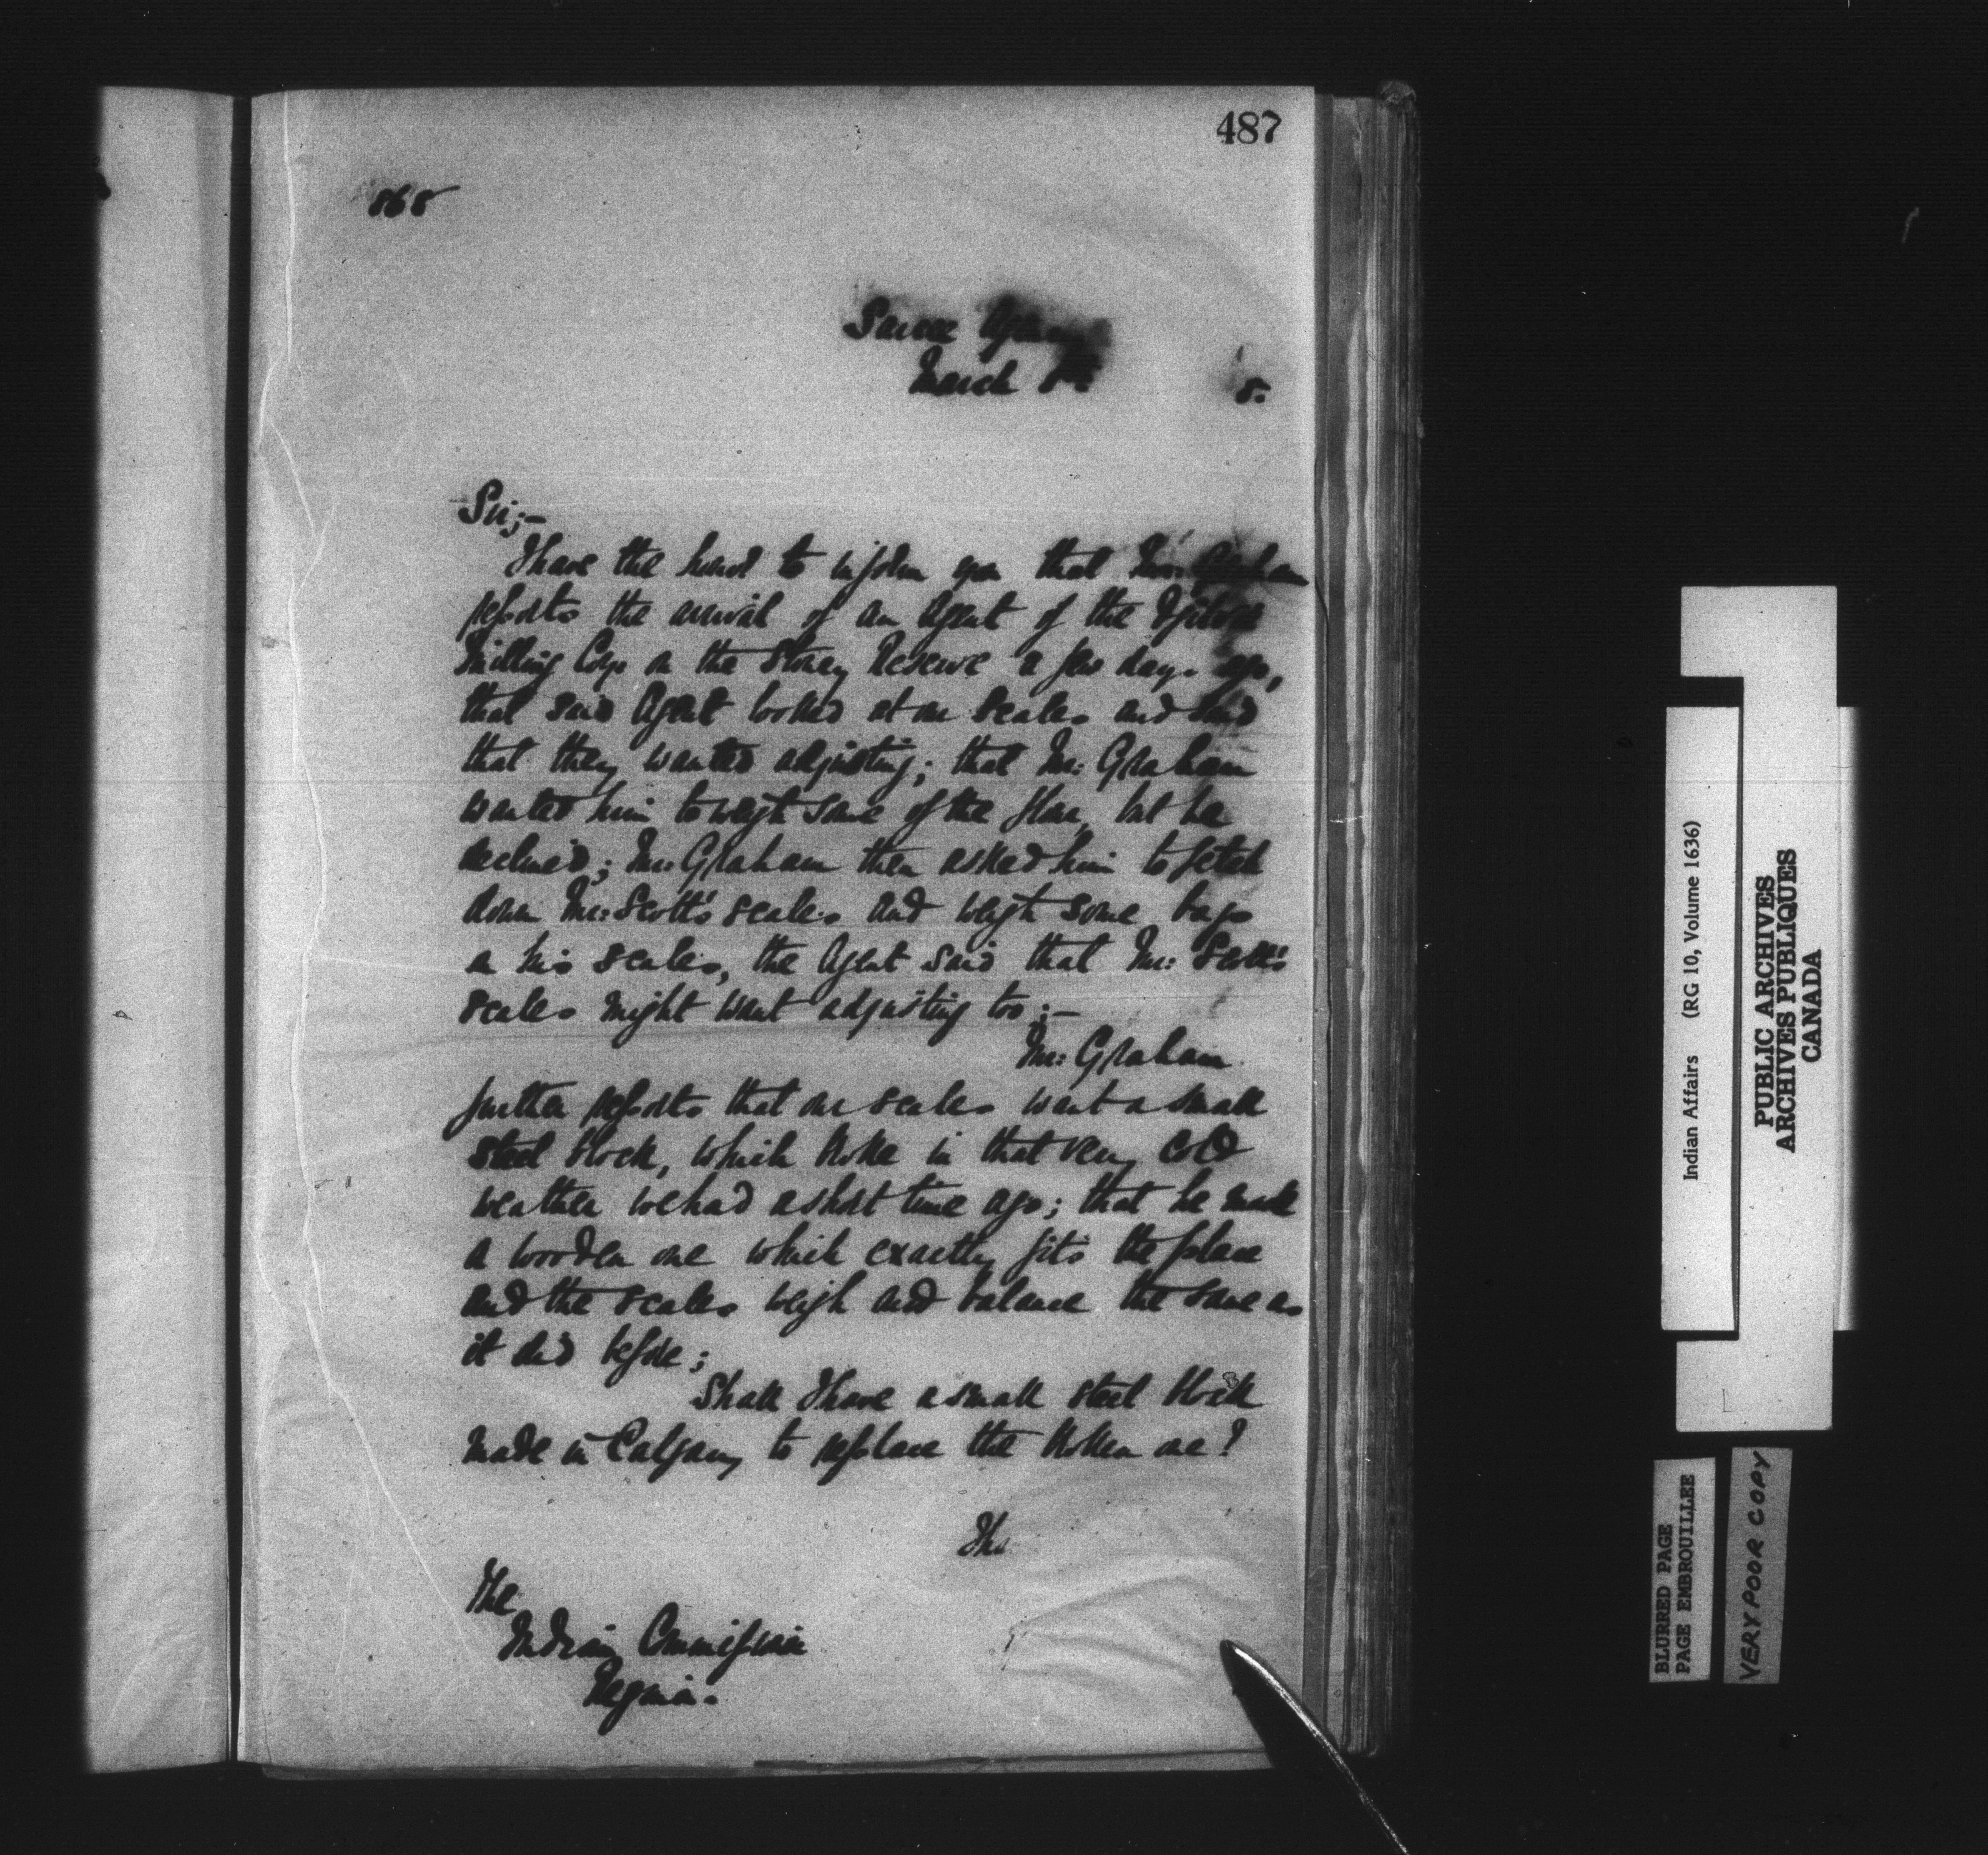 487
868
Sarcee Agency
March 8th
8.
Sir;-
I have the honor to inform you that Mr. Graham
reports the arrival of an Agent of the Ogilvie
Milling Coy. on the Stoney Reserve a few days ago,
that said Agent looked at our scales and said
that they wanted adjusting; that Mr: Graham
wanted him to weigh some of the flour, but he
declined; Mr: Graham then asked him to fetch
down Mr: Scott's scales and weigh some bags
on his scales, the Agent said that Mr: Scott's
scales might want adjusting too;-
Mr: Graham
further reports that our scales want a small
steel block, which broke in that very cold
weather we had a short time ago; that he made
a wooden one which exactly fits the place
and the scales weigh and balance the same as
it did before;
Shall I have a small steel block
made in Calgary to replace the broken one?
The
Indian Commissioner
Regina.
Indian Affairs (RG 10, Volume 1636)
PUBLIC ARCHIVES
ARCHIVES PUBLIQUES
CANADA
BLURRED PAGE
PAGE EMBROUILLEE
VERY POOR COPY